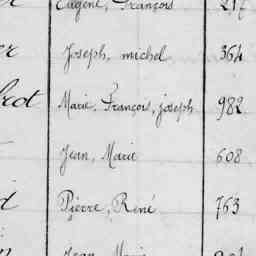 Eugène, François 217
Joseph, michel 364
Marie, François, joseph 982
Jean, Marie 608
Pierre, René 763
Jean, Marie